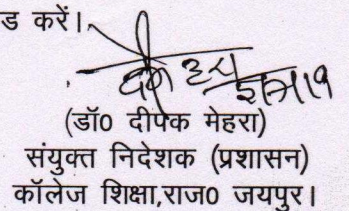 ड करें।
(डॉ0 दीपक मेहरा)
संयुक्त निदेशक (प्रशासन)
कॉलेज शिक्षा,राज0 जयपुर।